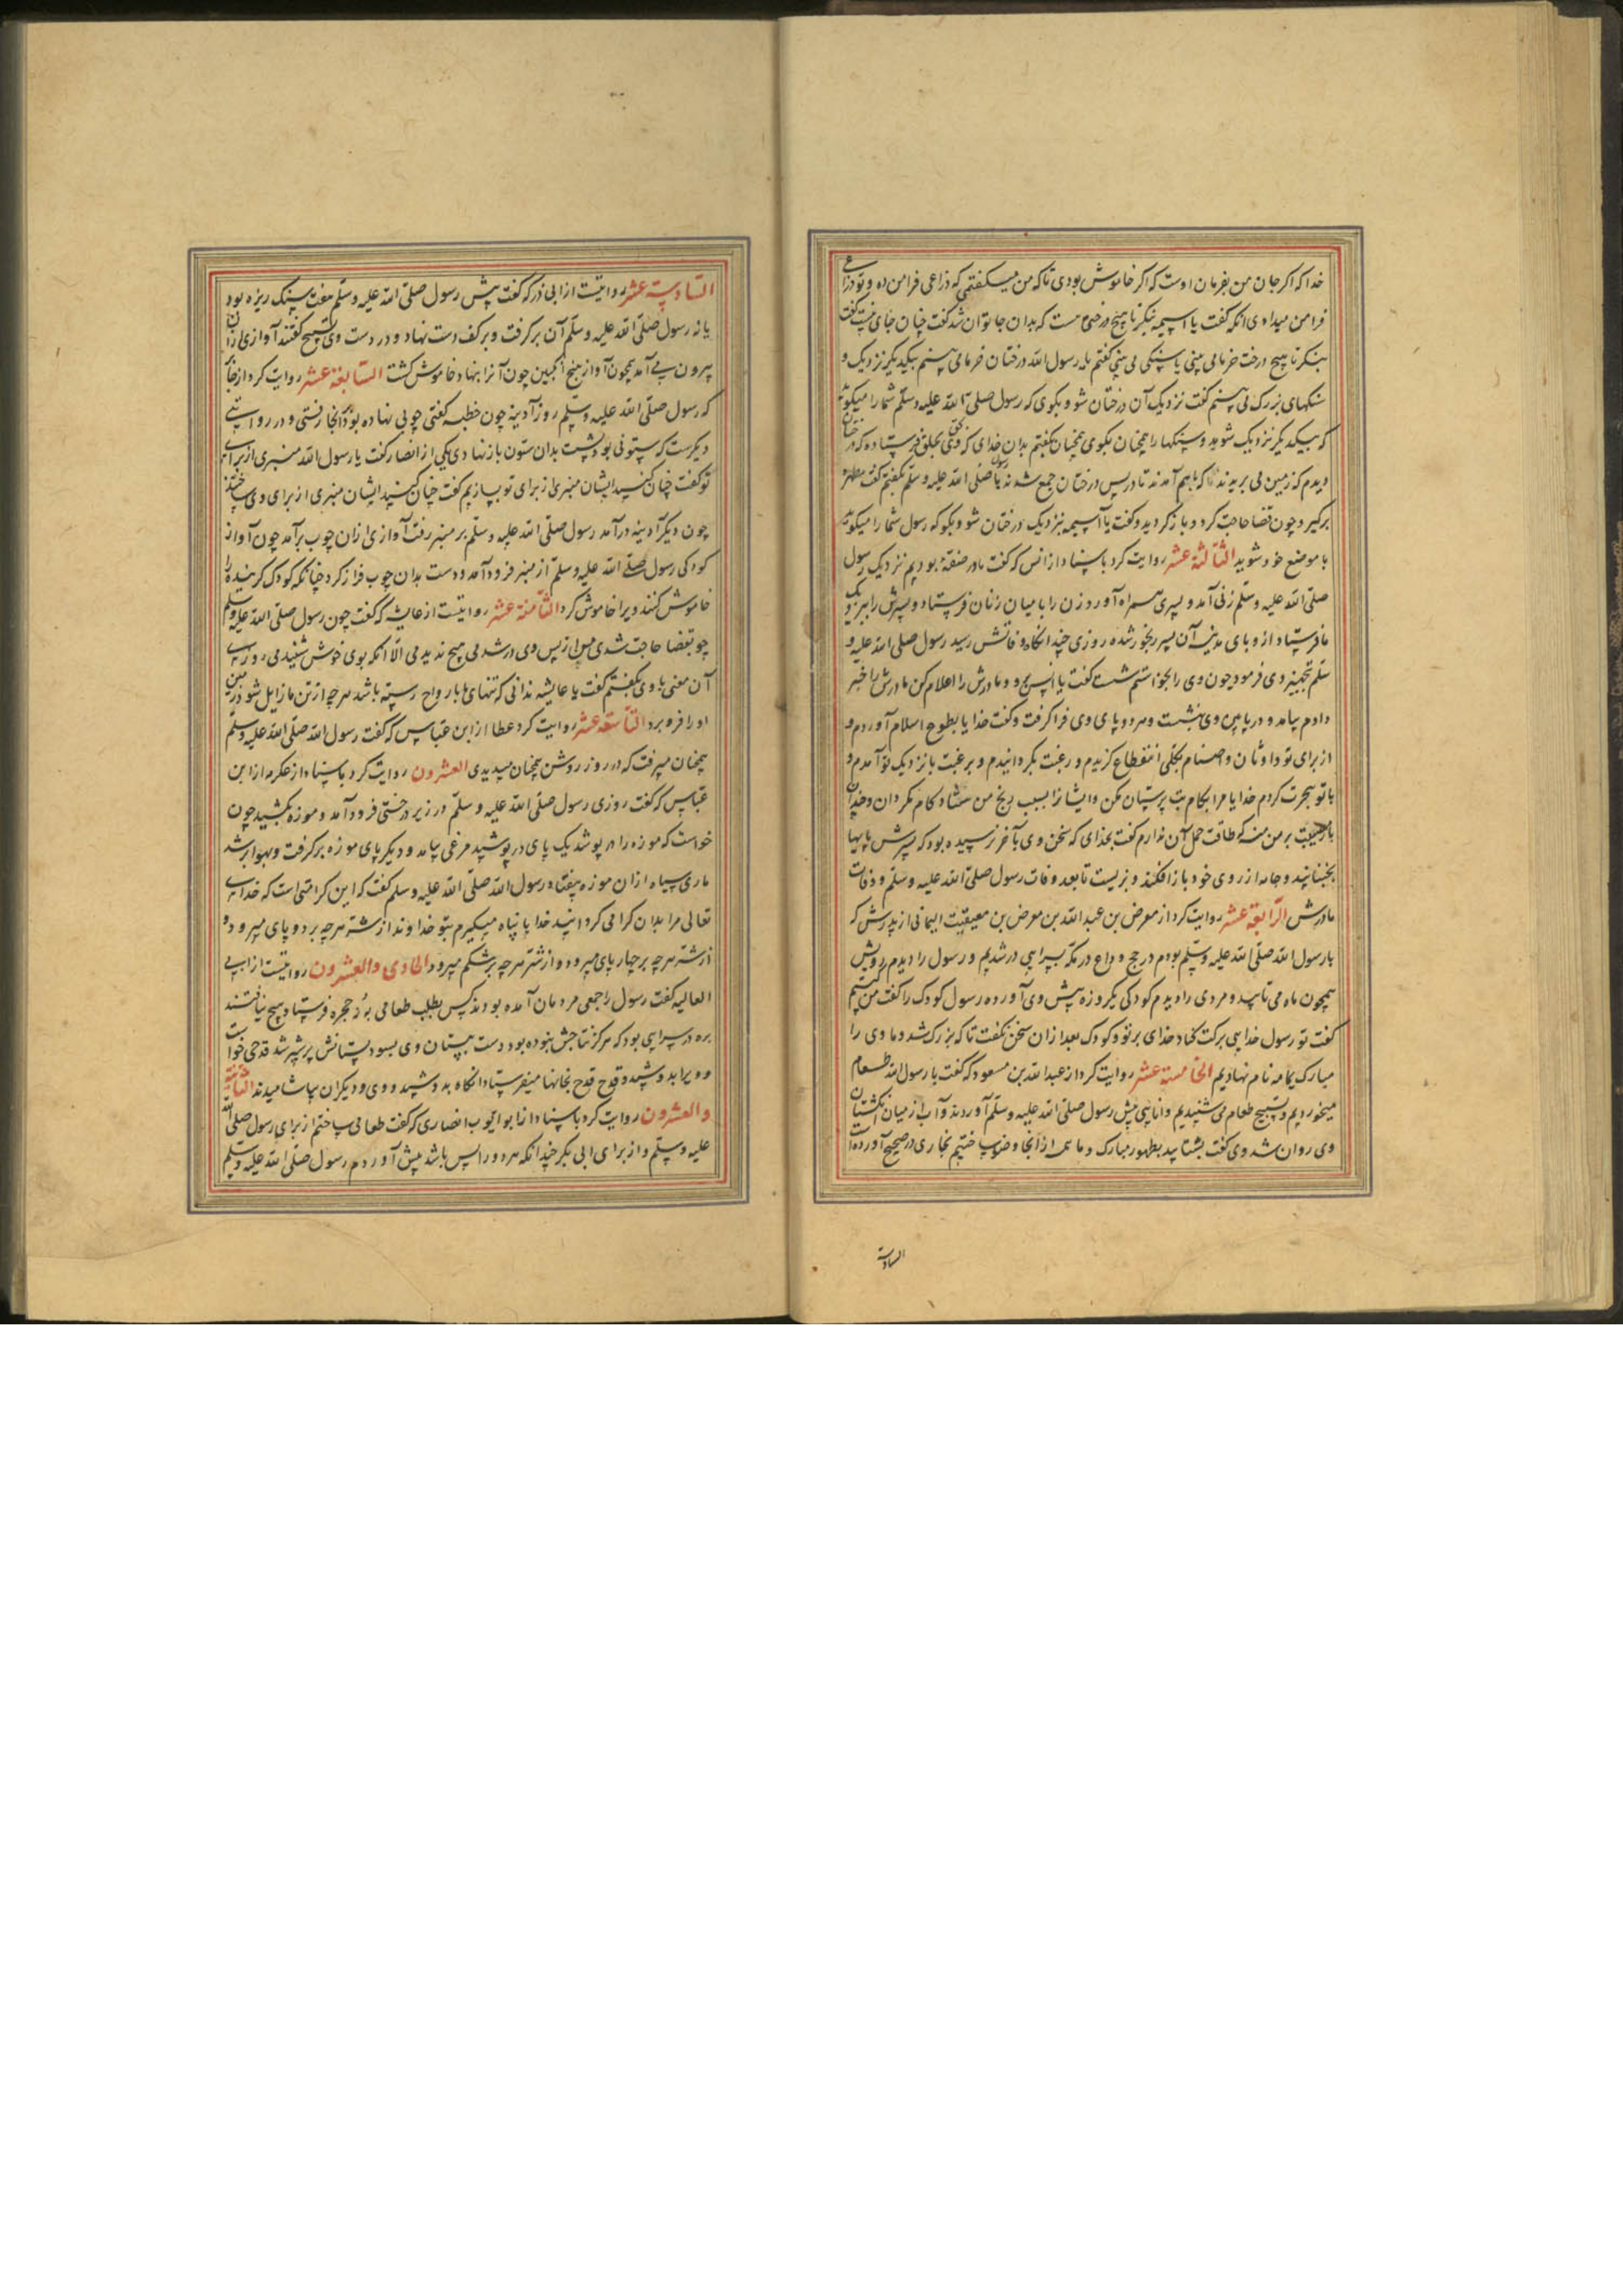 خدا که اکر جان من بفرمان اوست که اکر خاموش بودی تا که من میکفتمی که ذراعی فرا من ده و تو ذراعی
فرا من میدادی انکه کفت یا اسیمه بنکر تا هیچ درختی هست که بدان جا توان شد کفت چنان جای نیست کفت
بنکر تا هیچ درخت خرمایی بینی یا سنکی می بینی کفتم بله رسول الله درختان خرمایی بینم بیکدیکر نزدیک و
سنکهای بزرک می بینم کفت نزدیک آن درختان شو و بکوی که رسول صلی الله علیه وسلم شما را میکوید
که بیکدیکر نزدیک شوید و سنکها را همچنان بکوی همچنان بکفتم بدان خدای که ویرا بحق بخلق فرستاده که درختان
دیدم که زمین می بریدند تا که باهم آمدند تا در پس درختان جمع شدند با رسول صلی الله علیه وسلم بکفتم کفت مطهره
برکیر و چون قضا حاجت کرد و باز کردید و کفت یا آسیمه نزدیک درختان شو و بکو که رسول شما را میکوید
با موضع خود شوید الثالثة عشر روایت کرد باسناد از انس که کفت ما در صفة بودیم نزدیک رسول
صلی الله علیه وسلم زنی آمد و پسری همراه آورد زن را با میان زنان فرستاد و پسرش را بنزدیک
ما فرستاد از وبای مدینه آن پسر رنجور شد روزی چند انکاه وفاتش رسید رسول صلی الله علیه و
سلم تجهیز وی فرمود چون وی را بخواستم شست کفت یا انس برو و مادرش را اعلام کن مادرش را خبر
دادم بیامد و در پایین وی نشست و هر دو پای وی فرا کرفت و کفت خدایا بطوع اسلام آوردم و
از برای تو و اوثان و اصنام بکلی انقطاع کزیدم و رغبت بکردانیدم و برغبت با نزدیک تو آمدم و
با تو هجرت کردم خدایا مرا بکام بت پرستان مکن و ایشانرا بسبب رنج من شاد کام مکردان و چندان
بار مصیبت بر من منه که طاقت حمل آن ندارم کفت بخدای که سخن وی بآخر نرسیده بود که پسرش پایها
بجنبانید و جامه از روی خود باز افکند و بزیست تا بعد وفات رسول صلی الله علیه وسلم و وفات
مادرش الرابعة عشر روایت کرد از معرض بن عبد الله بن معرض بن معیقیب الیمانی از پدرش که
با رسول الله صلی الله علیه وسلم بودم در حج وداع در مکه بسرایی در شدیم و رسول را دیدم رویش
همچون ماه می تابید و مردی را دیدم کودکی یکروزه پیش وی آورده رسول کودک را کفت من کیستم
کفت تو رسول خدایی برکت کناد خدای بر تو و کودک بعد ازان سخن نکفت تا که بزرک شد و ما وی را
مبارک یمامه نام نهادیم الخامسة عشر روایت کرد از عبد الله بن مسعود که کفت با رسول الله طعام
میخوردیم و تسبیح طعام می شنیدیم و انایی پیش رسول صلی الله علیه وسلم آوردند و آب از میان انکشتان
وی روان شد وی کفت بشتابید بطهور مبارک و ما همه از آنجا وضو ساختیم بخاری در صحیح آورده است
السادسة
السادسة عشر روایتست از ابی ذر که کفت پیش رسول صلی الله علیه وسلم هفت سنک ریزه بود
یا نه رسول صلی الله علیه وسلم آن برکرفت و بر کف دست نهاد و در دست وی تسبیح کفتند آوازی ازان
بیرون می آمد همچون آواز منج انکبین چون آنرا بنهاد خاموش کشت السابعة عشر روایت کرد از جابر
که رسول صلی الله علیه وسلم روز آدینه چون خطبه کفتی چوبی نهاده بود آنجا رفتی و در روایتی
دیکرست که ستونی بود پشت بدان ستون باز نهادی یکی از انصار کفت یا رسول الله منبری از برای
تو کفت چنان کنید ایشان منبری از برای تو بسازیم کفت چنان کنید ایشان منبری از برای وی ساختند
چون دیکر آدینه درآمد رسول صلی الله علیه وسلم بر منبر رفت آوازی ازان چوب برآمد چون آواز
کودکی رسول صلی الله علیه وسلم از منبر فرود آمد و دست بدان چوب فراز کرد چنانکه کودک کرینده را
خاموش کنند ویرا خاموش کرد الثامنة عشر روایتست از عایشه که کفت چون رسول صلی الله علیه وسلم
چو بقضا حاجت شدی من از پس وی در شدمی هیچ ندیدمی الا انکه بوی خوش شنیدمی روزی
آن معنی با وی بکفتم کفت یا عایشه ندانی که تنهای ما با رواح رسته باشد هر چه از تن ما زایل شود زمین
او را فرو برد التاسعة عشر روایت کرد عطا از ابن عباس که کفت رسول الله صلی الله علیه وسلم
همچنان میرفت که در روز روشن همچنان میدیدی العشرون روایت کرد باسناد از عکرمه از ابن
عباس که کفت روزی رسول صلی الله علیه وسلم در زیر درختی فرود آمد و موزه بکشید چون
خواست که موزه را در پوشد یک پای در پوشید مرغی بیامد و دیکر پای موزه برکرفت و بهوا بر شد
ماری سیاه ازان موزه بیفتاد رسول الله صلی الله علیه وسلم کفت که این کرامتی است که خدای
تعالی مرا بدان کرامی کردانید خدایا پناه میکیرم بتو خداوندا از شر هر چه بر دو پای میرود و
از شر هر چه بر چهار پای میرود و از شر هر چه بر شکم میرود الحادی والعشرون روایتست از ابی
العالیه کفت رسول را جمعی مردمان آمده بودند کس بطلب طعامی بنه حجره فرستاد هیچ نیافتند
بره در سرایی بود که هرکز نتاجش نبوده بود دست بپستان وی بسود پستانش پر شیر شد قدحی خواست
و ویرا بدوشید و قدح قدح بخانها میفرستاد انکاه بدوشید و وی و دیکران بیاشامیدند الثانیة
والعشرون روایت کرد باسناد از ابو ایوب انصاری که کفت طعامی ساختم از برای رسول صلی الله
علیه وسلم و از برای ابی بکر چندانکه هر دو را بس باشد پیش آوردم رسول صلی الله علیه وسلم